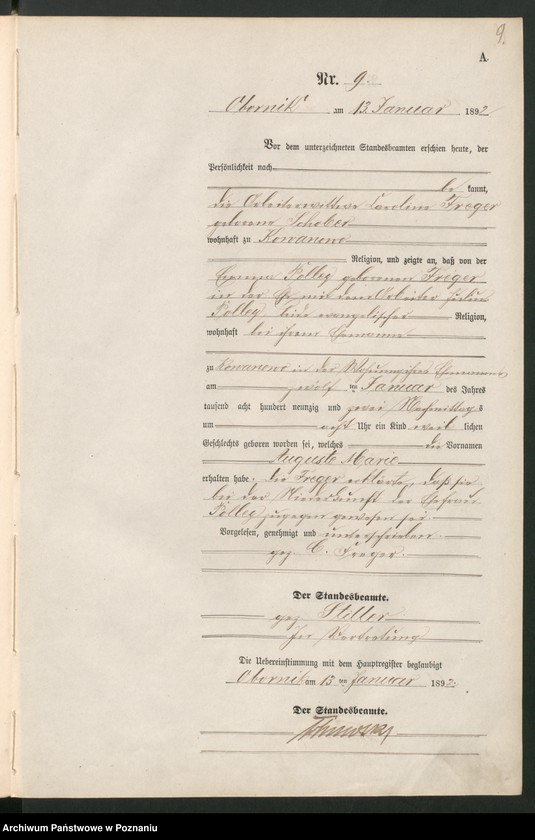 9.
A
Nr. 9.
Obornik am 13. Januar 1892
Vor dem unterzeichneten Standesbeamten erschien heute, der
Persönlichkeit nach
be kannt,
die Arbeiterwittwe Caroline Freger
geborene Schober
wohnhaft zu Kowanowo
Religion, und zeigte an, daß von der
Polley geborenen Freger
in der Ehe mit dem Arbeiter
Polley beide evangelischer Religion,
wohnhaft bei ihrem Ehemanne
zu Kowanowo in der Wohnung ihres Ehemannes
am zwölf ten Januar des Jahres
tausend acht hundert neunzig und zwei Nachmittags
um acht Uhr ein Kind weib lichen
Geschlechts geboren worden sei, welches die Vornamen
Auguste Marie
erhalten habe. Die Freger erklärte, daß sie
bei der Niederkunft der Ehefrau
Polley zugegen gewesen sei.
Vorgelesen, genehmigt und unterschrieben
gez C. Freger.
Der Standesbeamte.
gez Stiller
In Vertretung
Die Uebereinstimmung mit dem Hauptregister beglaubigt
Obornik am 13 ten Januar 1892.
Der Standesbeamte.
Archiwum Państwowe w Poznaniu